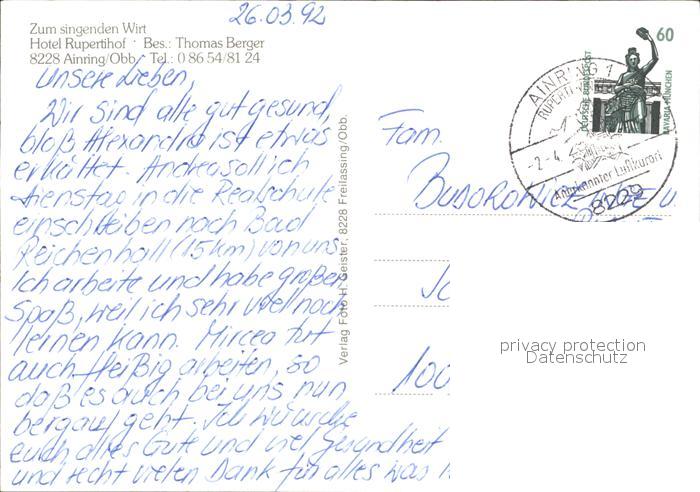 26.03.92
Zum singenden Wirt
Hotel Rupertihof · Bes.: Thomas Berger
8228 Ainring/Obb. · Tel.: 0 86 54/81 24
Unsere Lieben,
Wir sind alle gut gesund,
bloß Alexandra ist etwas
erkältet. Andrea soll ich
Dienstag in die Realschule
einschreiben nach Bad
Reichenhall (15 km) von uns.
Ich arbeite und habe großen
Spaß, weil ich sehr viel noch
lernen kann. Mircea tut
auch fleißig arbeiten, so
daß es auch bei uns nun
bergauf geht. Ich wünsche
euch alles Gute und viel Gesundheit
und recht vielen Dank für alles was
Verlag Foto H. Geister, 8228 Freilassing/Obb.
60
DEUTSCHE BUNDESPOST
BAVARIA MÜNCHEN
AINRING 1
-2.-4.
Anerkannter Luftkurort
8229
Fam.
100
privacy protection
Datenschutz